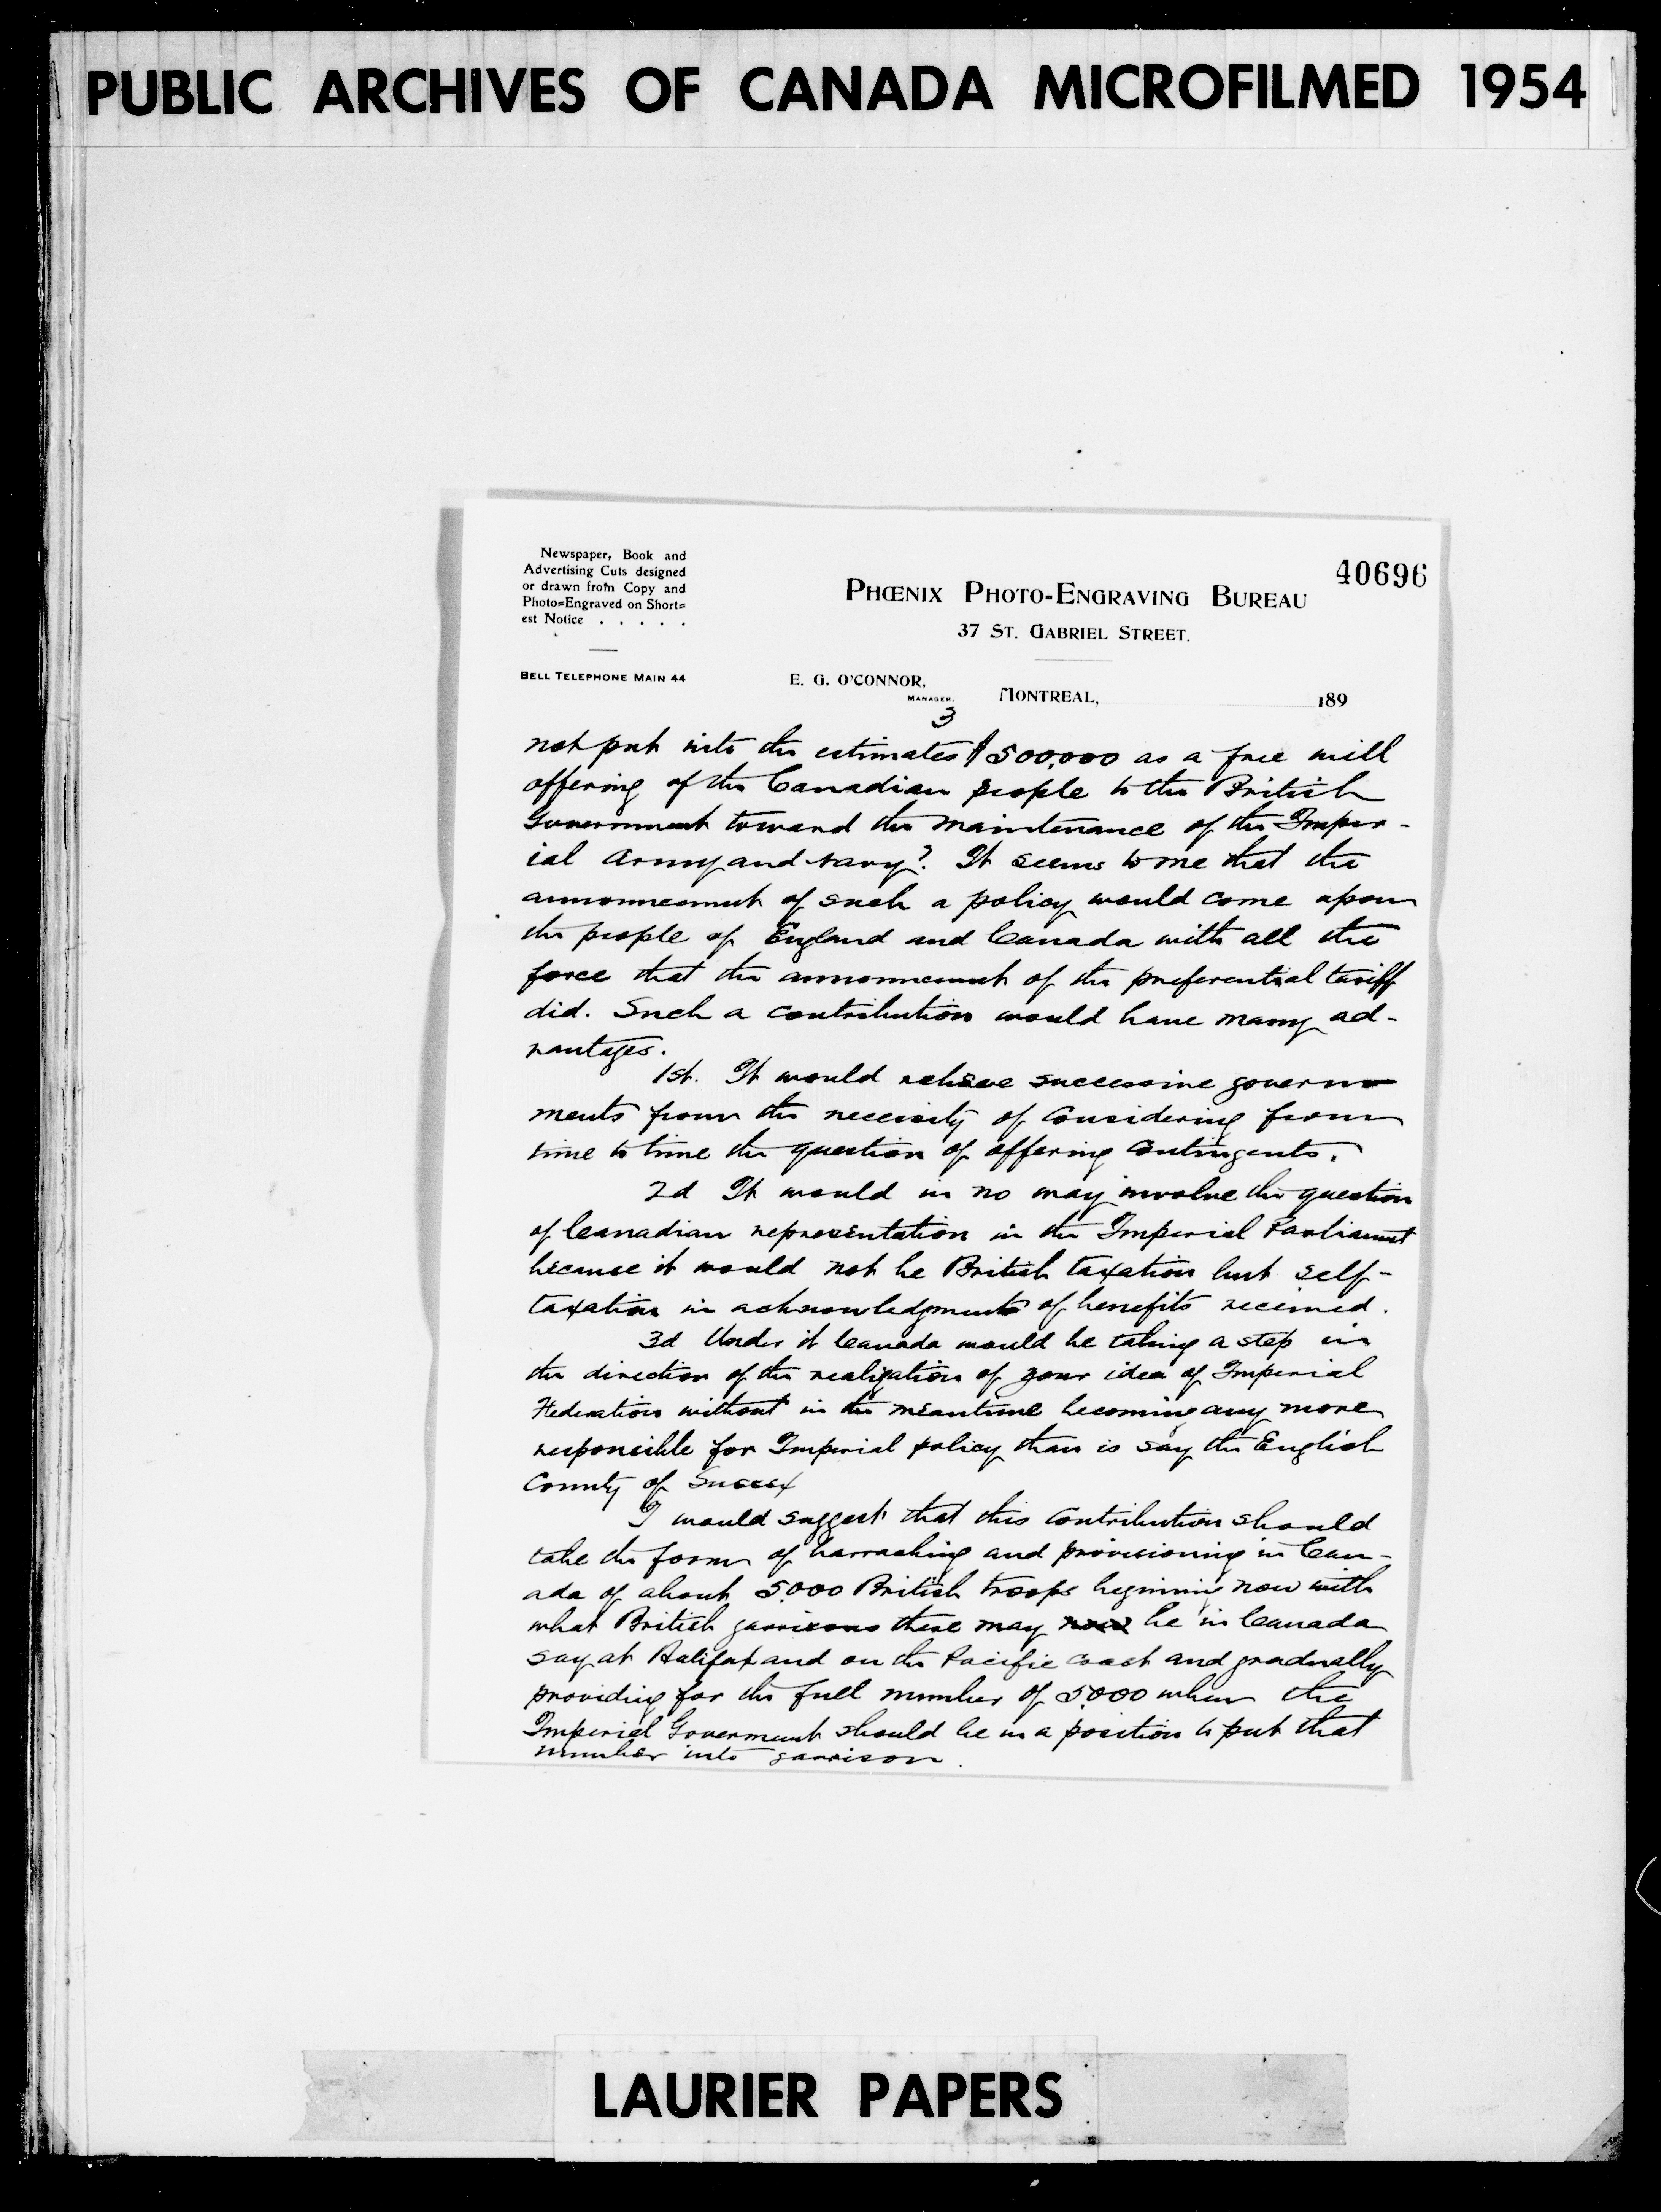 PUBLIC ARCHIVES OF CANADA MICROFILMED 1954
40696
Newspaper, Book and
Advertising Cuts designed
or drawn from Copy and
Photo=Engraved on Short=
est Notice . . . . .
BELL TELEPHONE MAIN 44
PHŒNIX PHOTO-ENGRAVING BUREAU
37 ST. GABRIEL STREET.
E. G. O'CONNOR,
MANAGER.
MONTREAL, 189
3
not put into the estimates $500,000 as a free will
offering of the Canadian people to the British
Government toward the maintenance of the Imper-
ial Army and navy? It seems to me that the
announcement of such a policy would come upon
the people of England and Canada with all the
force that the announcement of the preferential tariff
did. Such a contribution would have many ad-
vantages.
1st. It would relieve successive govern
ments from the necessity of considering from
time to time the question of offering contingents.
2d It would in no way involve the question
of Canadian representation in the Imperial Parliament
because it would not be British taxation but self-
taxation in acknowledgment of benefits received.
3d Under it Canada would be taking a step in
the direction of the realization of your idea of Imperial
Federation without in the meantime becoming any more
responsible for Imperial policy than is say the English
County of Sussex
I would suggest that this contribution should
take the form of barracking and provisioning in Can-
ada of about 5,000 British troops beginning now with
what British garrisons there may be in Canada
say at Halifax and on the Pacific coast and gradually
providing for the full number of 5,000 when the
Imperial Goverment should be in a position to put that
number into garrison.
LAURIER PAPERS